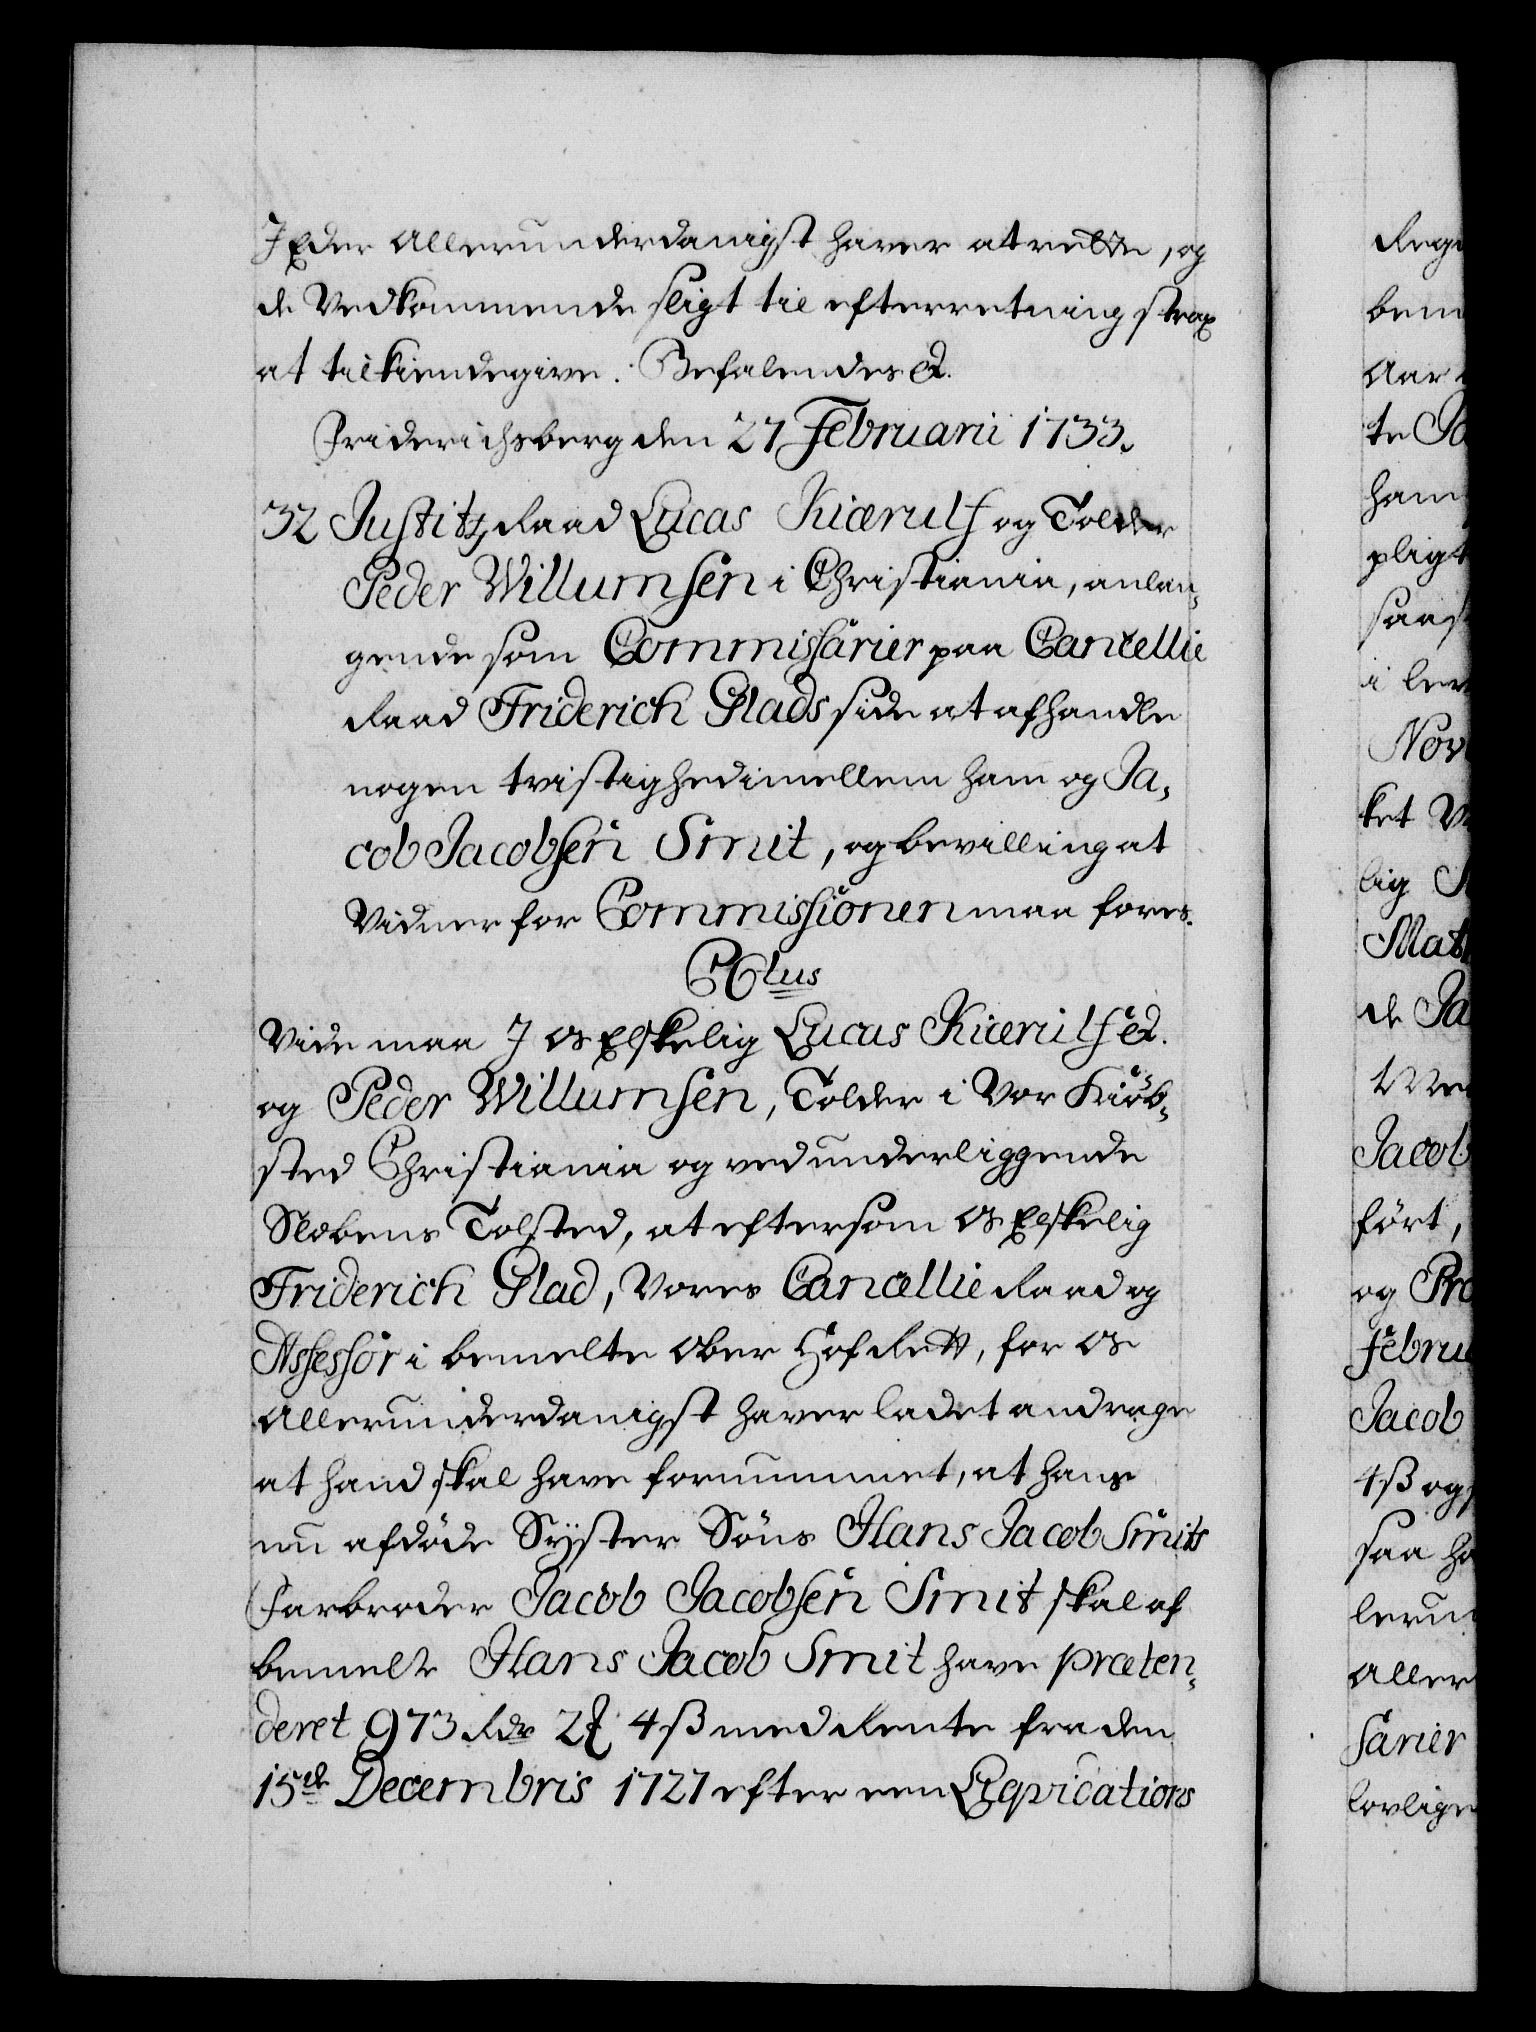 I Eder Allerunderdanigst haver at rette, og
de Vedkommende sligt til efterretning strax
at tilkiendegive. Befalendes &.
Friderichsberg den 27 Februarii 1733.
32 Justitz Raad Lucas Kiærulf og Tolder
Peder Willumsen i Christiania, anlan,,
gende som Commissarier paa Cancellie
Raad Friderich Glads side at afhandle
nogen tvistighed imellem ham og Ja,,
cob Jacobsen Smit, og bevilling at
Vidner for Commissionen maa føres.
C6tus
Vide maa I Os Elskelig Lucas Kiærulf &.
og Peder Willumsen, Tolder i Vor Kiøb,,
sted Christiania og ved underliggende
Slebens Tolsted, at eftersom Os Elskelig
Friderich Glad, Vores Cancellie Raad og
Assessor i bemelte Ober Hof Rett, for Os
Allerunderdanigst haver ladet andrage
at hand skal have fornummet, at hans
nu afdøde Syster Søns Hans Jacob Smits
Farbroder Jacob Jacobsen Smit skal af
bemelte Hans Jacob Smit have præten,,
deret 973 Rdr 2 ₰ 4 ß med Rente fra den
15de Decembris 1727 efter een Liqvidations
bem
Aar
te Ja
ham
pligt
saas
i lev
Nov
ket V
lig
Mat
de Ja
Jacob
ført,
og Pro
Febru
Jacob
4 ß og
saa ha
lerun
Aller
sarier
lovlige